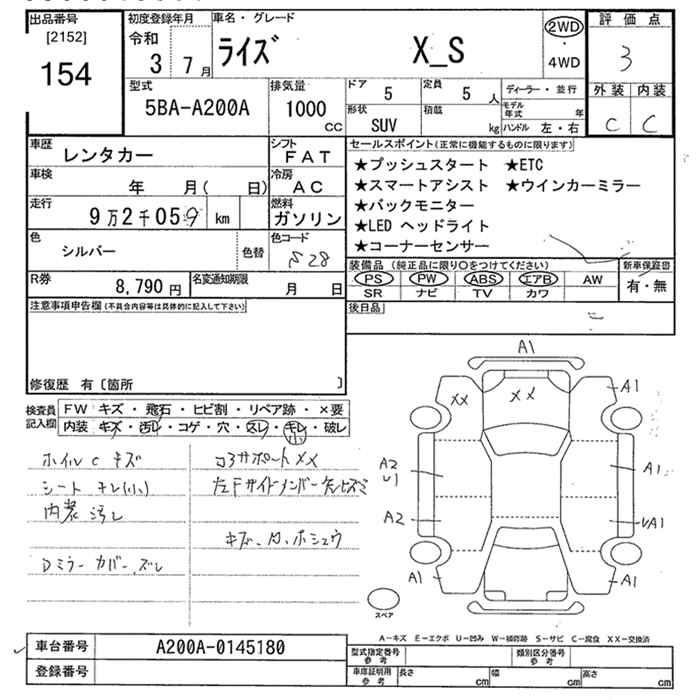 出品番号 初度登録年月 車名・グレード 評価点
[2152] 令和 ライズ X_S 2WD・4WD 3
154 3 7月
外装 内装
型式 排気量 ドア 5 定員 5人 ディーラー・並行
5BA-A200A 1000CC 形状 SUV 積載 kg モデル年式 年
ハンドル 左・右 C C
車歴 レンタカー シフト FAT
車検 年 月( 日) 冷房 AC
走行 9万2千059 km 燃料 ガソリン
色 シルバー 色替 色コード S28
R券 8,790円 名変通知期限 月 日
セールスポイント(正常に機能するものに限ります)
★プッシュスタート ★ETC
★スマートアシスト ★ウインカーミラー
★バックモニター
★LED ヘッドライト
★コーナーセンサー
装備品(純正品に限り○をつけてください) 新車保証書
PS PW ABS エアB AW 有・無
SR ナビ TV カワ
後日品
注意事項申告欄(不具合内容等は具体的に記入して下さい)
修復歴 有〔箇所 〕
検査員記入欄 FW キズ・飛石・ヒビ割・リペア跡・×要
内装 キズ・汚レ・コゲ・穴・スレ・キレ・破レ
小
ホイルC キズ
シート キレ(小)
内装 汚レ
Dミラーカバー ズレ
コアサポートXX
左Fサイドメンバー先ヒズミ
キズ、凹、ホシュウ
A1
XX XX A1
A2
U1 A1
A2 A1
A1 A1
スペア
A-キズ E-エクボ U-凹み W-補修跡 S-サビ C-腐食 XX-交換済
車台番号 A200A-0145180
登録番号
型式指定番号 参考 類別区分番号 参考
車庫証明用 参考 長さ cm 幅 cm 高さ cm